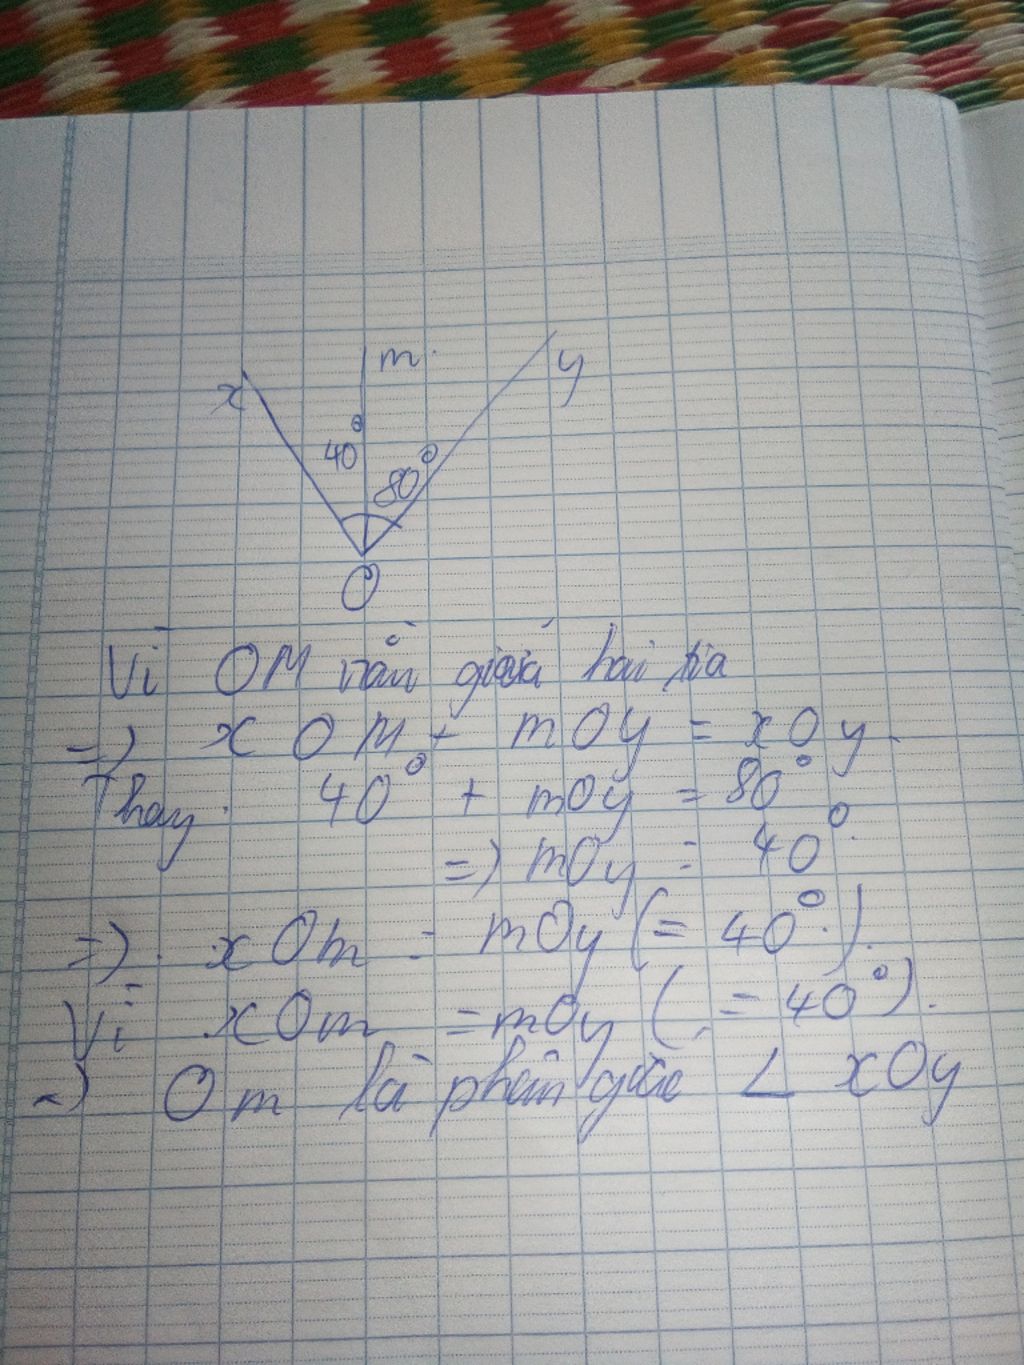 x
m
y
40°
80°
O
Vì OM nằm giữa hai tia
=) xOM + mOy = xOy.
Thay. 40° + mOy = 80°
=) mOy = 40°.
=) xOm = mOy (= 40°).
Vì xOm = mOy (= 40°).
=) Om là phân giác ∠ xOy